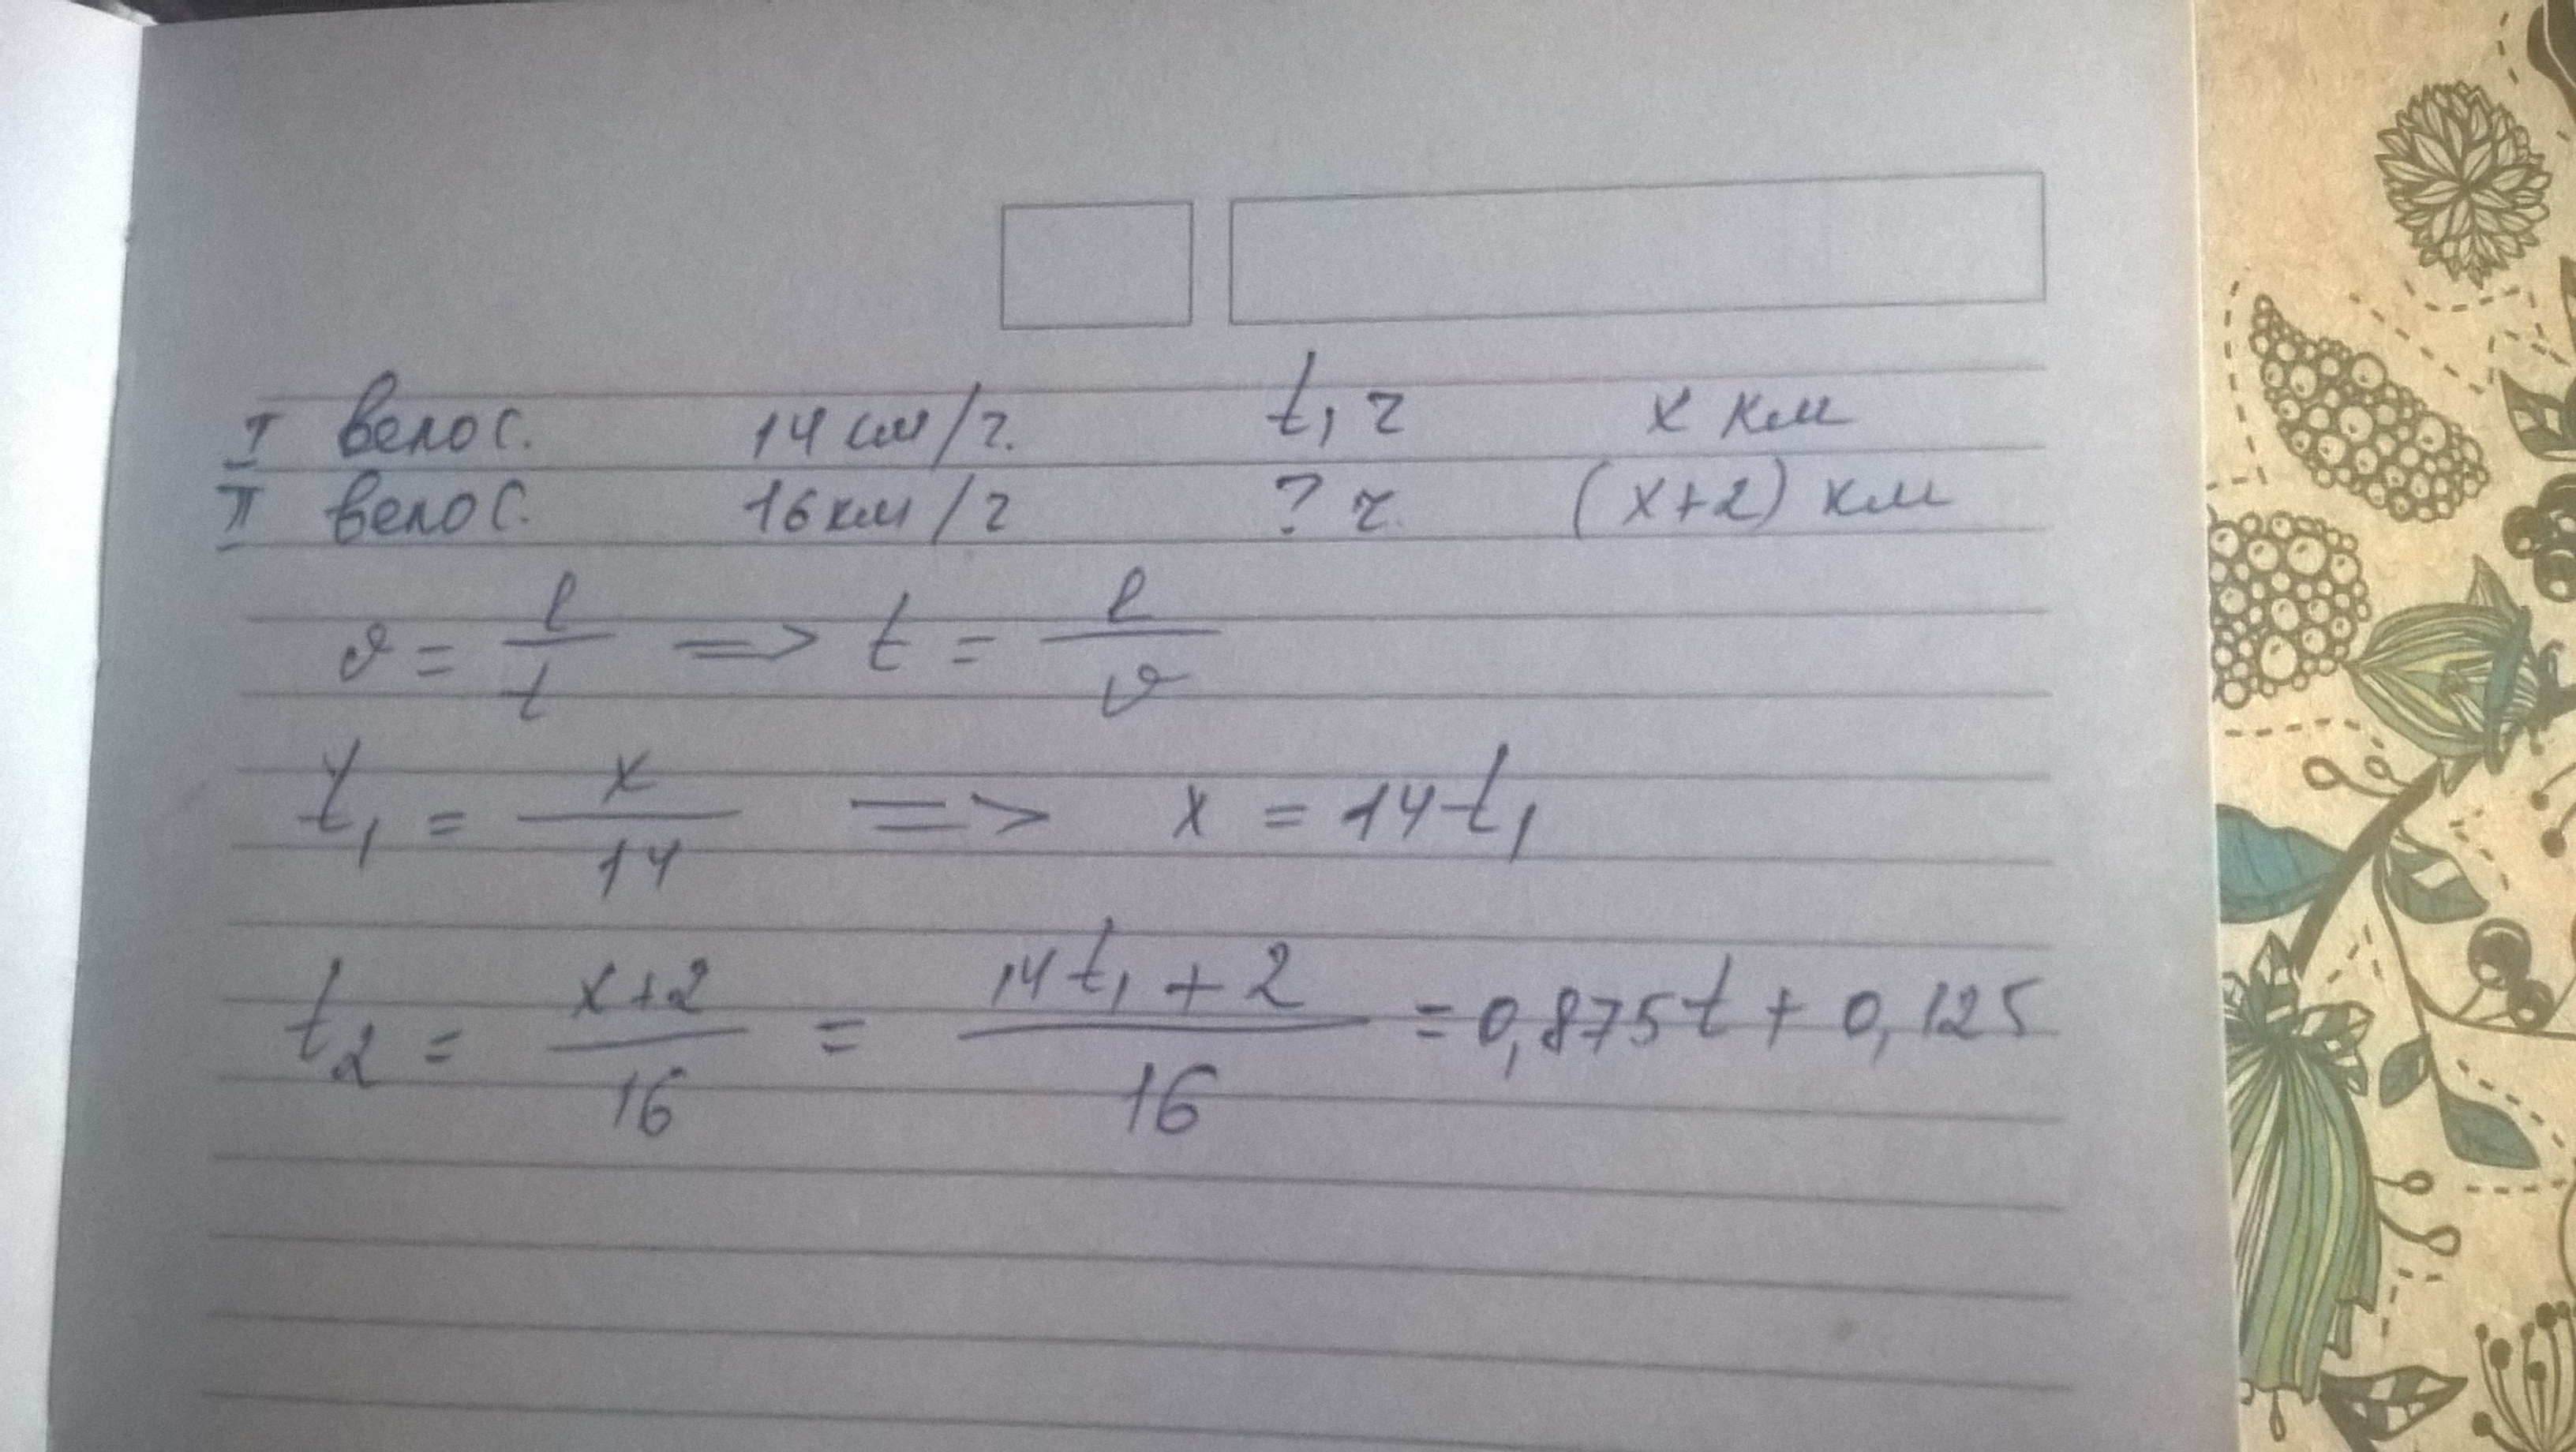 I велос. 14 км/ч. t₁ ч x км
II велос. 16 км/ч ? ч. (x+2) км
v = l/t => t = l/v
t₁ = x/14 => x = 14t₁
t₂ = x+2/16 = 14t₁+2/16 = 0,875t + 0,125